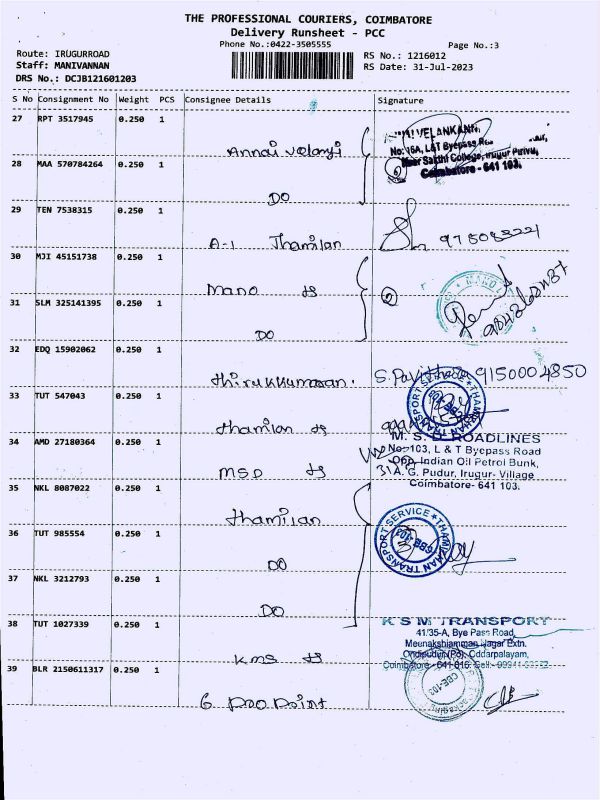 THE PROFESSIONAL COURIERS, COIMBATORE
Delivery Runsheet - PCC
Phone No.:0422-3505555
Page No.:3
Route: IRUGURROAD
Staff: MANIVANNAN
DRS No.: DCJB121601203
RS No.: 1216012
RS Date: 31-Jul-2023
S No Consignment No Weight PCS Consignee Details Signature
27 RPT 3517945 0.250 1
Annai velanji
VELANKANNI
No: 16A, L&T Byepass
Near Sakthi College, Irugur Pirivu,
Coimbatore - 641 103.
28 MAA 570784264 0.250 1
DO
29 TEN 7538315 0.250 1
A-1 Thamilan
30 MJI 45151738 0.250 1
Mano
31 SLM 325141395 0.250 1
DO
32 EDQ 15902062 0.250 1
thirukkumaran. S. Pavithra 9150004850
33 TUT 547043 0.250 1
thamilan
THAMIZHAN TRANSPORT SERVICE
34 AMD 27180364 0.250 1
MSD
M. S. D ROADLINES
No: 103, L & T Byepass Road
Opp. Indian Oil Petrol Bunk,
31 A. G. Pudur, Irugur- Village
Coimbatore- 641 103.
35 NKL 8087022 0.250 1
thamilan
THAMIZHAN TRANSPORT SERVICE
36 TUT 985554 0.250 1
DO
37 NKL 3212793 0.250 1
DO
38 TUT 1027339 0.250 1
KMS
K S M TRANSPORT
41/35-A, Bye Pass Road,
Meenakshiamman Nagar Extn.
Ondipudur (Po), Oddarpalayam,
Coimbatore - 641 016. Cell:
39 BLR 2150611317 0.250 1
G Pro Point
CBE-103